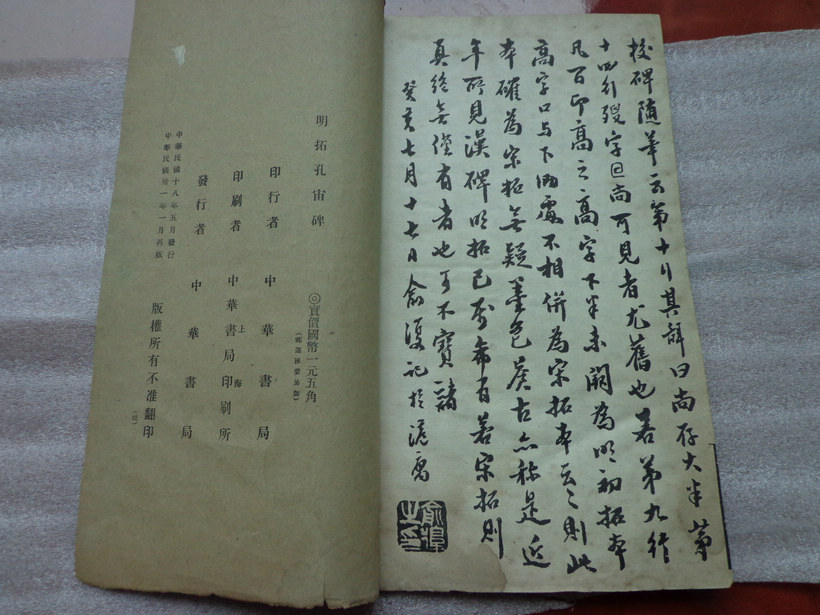 校碑隨筆云第十行其辭曰尚存大半第
十四行歿字尚可見者尤舊也若第九行
凡百卬高之高字下半未闕為明初拓本
高字口与下泐處不相併為宋拓本云〻則此
本確為宋拓無疑墨色古亦稱是近
年所見漢碑明拓已屬希有若宋拓則
真絕無僅有者也可不寶諸
癸亥七月十七日俞復記於滬寓
明拓孔宙碑
◎實價國幣一元五角
印行者 中華書局
印刷者 上海中華書局印刷所
發行者 中華書局
中華民國十八年五月發行
中華民國卅一年一月再版
版權所有不准翻印